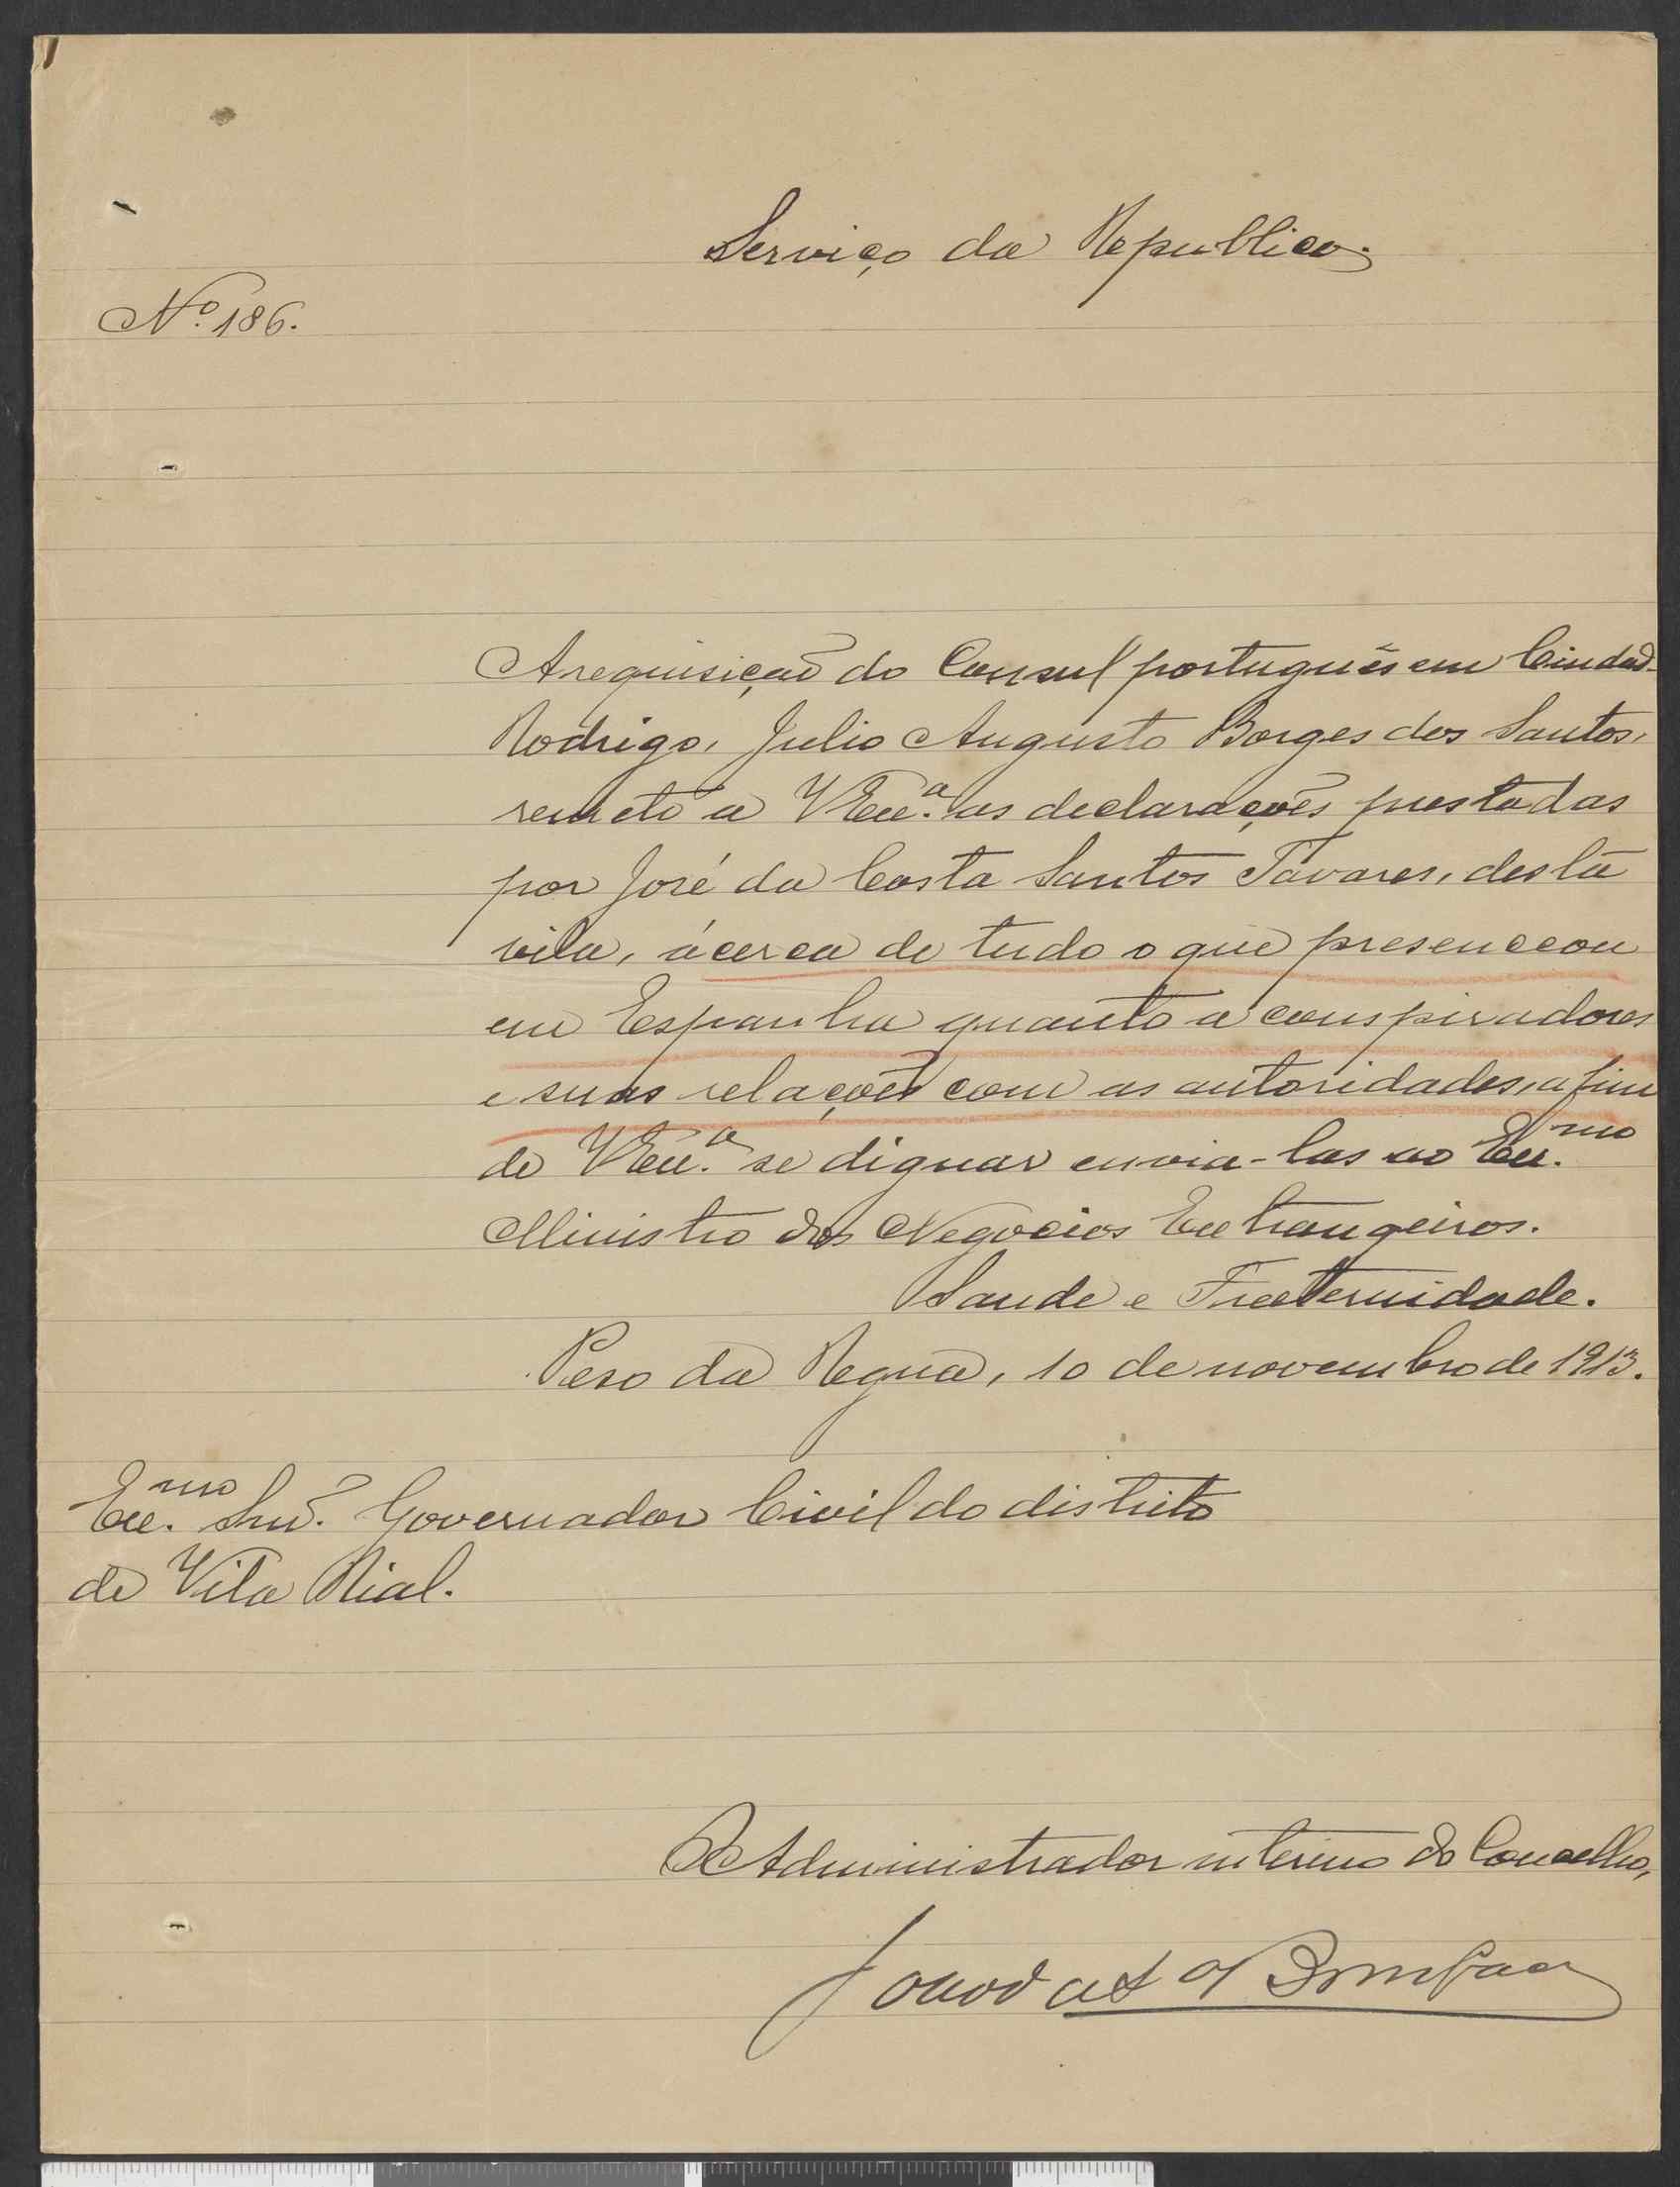 Serviço da Republica.
Nº. 186.
A requisição do Consul português em Ciudad-
Rodrigo, Julio Augusto Borges dos Santos,
remeto a V Exc.ª as declarações prestadas
por José da Costa Santos Tavares, desta
vila, ácerca de tudo o que presenceou
em Espanha quanto a conspiradores
e suas relações com as autoridades, a fim
de V Exc.ª se dignar envia-las ao Exc.mo
Ministro dos Negocios Extrangeiros.
Saude e Fraternidade.
Peso da Regua, 10 de novembro de 1913.
Exc.mo Snr. Governador Civil do distrito
de Vila Rial.
O Administrador interino do Concelho,